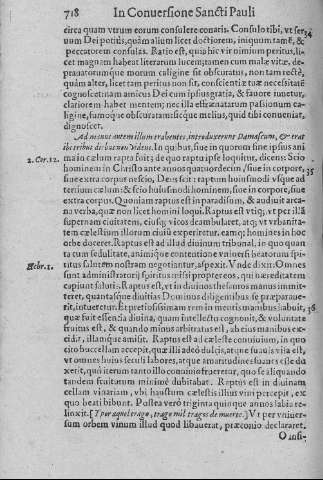 718 In Conuersione Sancti Pauli
circa quam vtrum eorum consulere conaris. Consulo tibi, vt ser- 34
uum Dei petitis, quàm alium licet doctiorem, iniquum tamē, &
peccatorem consulas. Ratio est, quia hic vir nimium peritus, li-
cet magnam habeat literarum lucem; tamen cum malæ vitæ, de-
prauatorumque morum caligine sit obscuratus, non tam rectè,
quàm alter, licet tam peritus non sit, conscientiæ tuæ necessitatē
cognoscet: nam amicus Dei cum ipsius gratia, & fauore iunetur,
clariorem habet mentem; nec illa effrænatarum passionum ca-
ligine, fumoque obscuratam: sicque melius, quid tibi conueniat,
dignoscet.
Ad manus autem illum trahentes, introduxerunt Damascum, & erat
2. Cor. 12. ibi tribus diebus non videns. In quibus, siue in quorum sine ipsius ani-
ma in cælum rapta fuit; de quo raptu ipse loquitur, dicens: Scio
hominem in Christo ante annos quatuordecim, siue in corpore, 35
siue extra corpus nescio, Deus scit: raptum huiusmodi vsque ad
tertium cælum: & scio huiusmodi hominem, siue in corpore, siue
extra corpus. Quoniam raptus est in paradisum, & audiuit arca-
na verba, quæ non licet homini loqui. Raptus est vtiq; vt per illā
supernam ciuitatem, eiusq; vicos deambularet, atq; vt vrbanita-
tem cælestium illorum ciuiū experiretur. eamq; homines in hoc
orbe doceret. Raptus est ad illud diuinum tribunal, in quo quan
ta cum sedulitate, animique contentione vniuersi beatorum spi-
Hebr. 1. ritus salutem nostram negotiantur, aspexit. Vnde dixit: Omnes
sunt administratorij spiritus missi propter eos, qui hæreditatem
capiunt salutis. Raptus est, vt in diuinos thesauros manus immit-
teret, quantasque diuitias Dominus diligentibus se præparaue-
rit, intueretur. Et pretiosissimam rem in mentis manibus habuit, 36
quæ fuit essentia diuina, quam intellectu cognouit, & voluntate
fruitus est, & quando minus arbitratus est, ab eius manibus ex-
cidit, illamque amisit. Raptus est ad cæleste conuiuium, in quo
eius buccellam accepit, quæ illi adeò dulcis, atque suauis visa est,
vt omnes huius sæculi labores, atque amaritudines suaues esse du
xerit, quò iterum tanto illo conuiuio frueretur, quo se aliquando
tandem fruiturum minimè dubitabat. Raptus est in diuinam
cellam vinariam, vbi haustum cælestis illius vini percepit, ex
quo beati bibunt. Postea verò triginta quinque annos labia re-
linxit. [Y por aquel trago, trago mil tragos de muerte.] Vt per vniuer-
sum orbem vinum illud quod libauerat, præconio declararet.